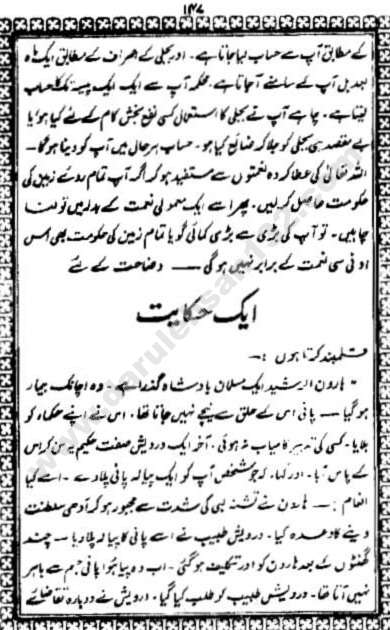 ۱۴۷
کے مطابق آپ سے حساب لیا جاتا ہے۔ اور بجلی کے صراف کے مطابق ایک ماہ
بعد بل آپ کے سامنے آ جاتا ہے۔ محکمہ آپ سے ایک ایک پیسہ تک کا حساب
لیتا ہے۔ چاہے آپ نے بجلی کا استعمال کسی نفع بخش کام کے لئے کیا ہو یا
بے مقصد ہی بجلی کو جلا کر ضائع کیا ہو۔ حساب بہرحال میں آپ کو دینا ہوگا۔
اللہ تعالیٰ کی عطا کردہ نعمتوں سے مستفید ہو کر اگر آپ تمام روئے زمین کی
حکومت حاصل کر لیں۔ پھر اسے ایک معمولی نعمت کے بدلہ میں تولنا
چاہیں۔ تو آپ کی بڑی سے بڑی کمائی گویا تمام زمین کی حکومت بھی اس
ادنیٰ سی نعمت کے برابر نہیں ہوگی —— وضاحت کے لئے
ایک حکایت
قلمبند کرتا ہوں :۔
" ہارون الرشید ایک مسلمان بادشاہ گذرا ہے۔ وہ اچانک بیمار
ہو گیا —— پانی اس کے حلق سے نیچے نہیں جاتا تھا۔ اس نے اپنے حکماء کو
بلایا۔ کسی کی تدبیر کامیاب نہ ہوئی۔ آخر ایک درویش صفت حکیم یہ سن کر اس
کے پاس آیا۔ اور کہا۔ کہ جو شخص آپ کو ایک پیالہ پانی پلا دے۔ اسے کیا
انعام :— ہارون نے تشنہ لبی کی شدت سے مجبور ہو کر آدھی سلطنت
دینے کا وعدہ کیا۔ درویش طبیب نے اسے پانی کا پیالہ پلا دیا — چند
گھنٹوں کے بعد ہارون کو اور تکلیف ہو گئی۔ اب وہ پیا ہوا پانی جسم سے باہر
نہیں آتا تھا۔ درویش طبیب کو طلب کیا گیا۔ درویش نے دوبارہ تقاضائے